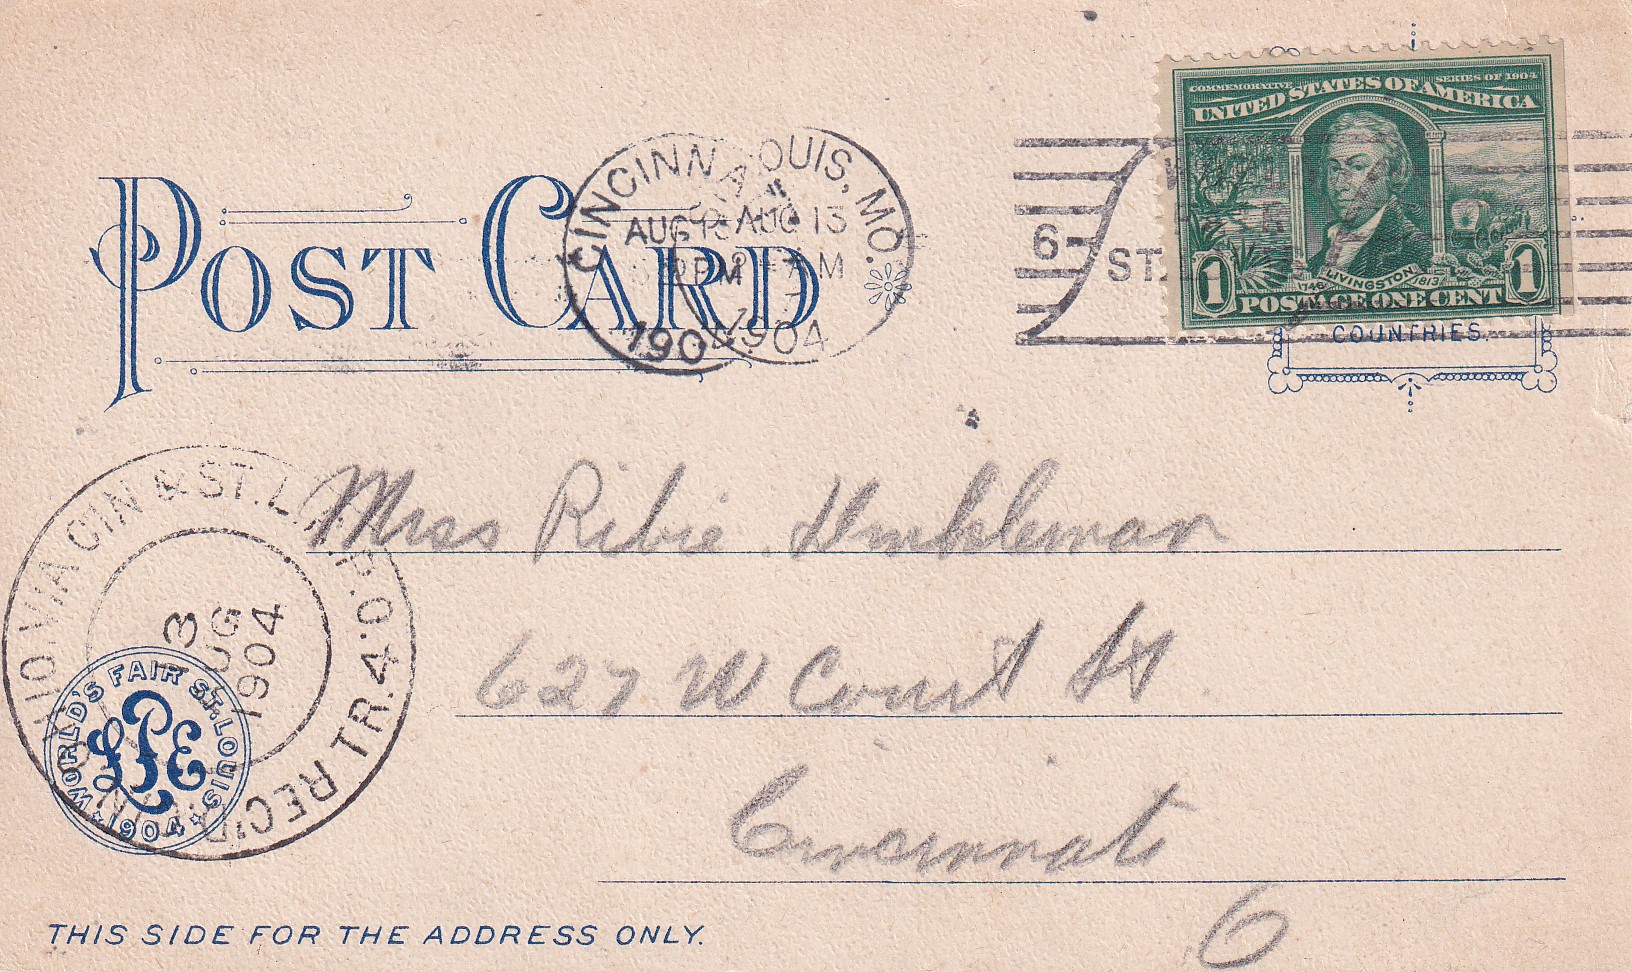 COMMEMORATIVE SERIES OF 1904
UNITED STATES OF AMERICA
1746 LIVINGSTON 1813
1 POSTAGE ONE CENT 1
COUNTRIES.
POST CARD
CINCINNATI
AUG 13
PM
190
LOUIS, MO.
AUG 13
AM
1904
6
ST.
Miss Ribie
627 W Court St.
Cincinnati
O
VIA CIN & ST. L.
REC'D. TR. 4.
13
AUG
1904
WORLD'S FAIR ST. LOUIS
LPE
1904
THIS SIDE FOR THE ADDRESS ONLY.